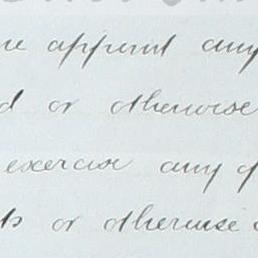 appoint any
or otherwise
exercise any
or otherwise